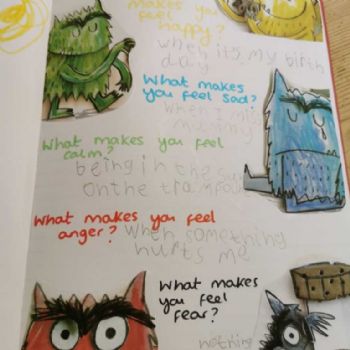 What makes you feel
happy?
when its my birth
day
What makes
you feel sad?
when I miss
mummy
What makes you feel
calm?
being in the sun
on the trampoline
What makes you feel
anger?
When something
hurts me
What makes
you feel
fear?
nothing